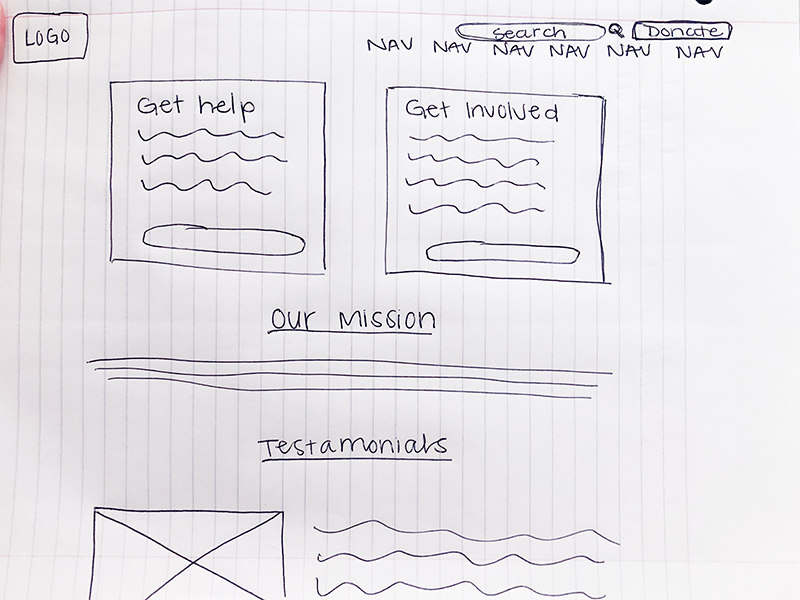 LOGO
Search Donate
NAV NAV NAV NAV NAV NAV
Get help
Get Involved
Our Mission
Testamonials